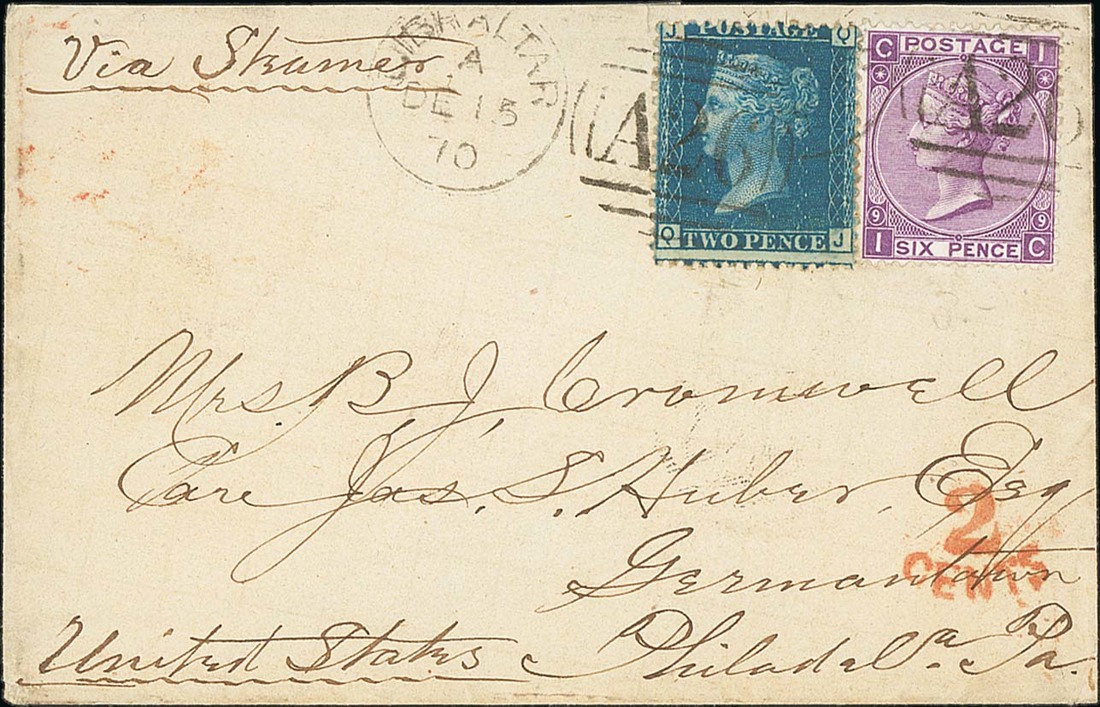 Via Steamer
GIBRALTAR
A
DE 15
70
A26
J POSTAGE Q
Q TWO PENCE J
A26
C POSTAGE I
9 9
I SIX PENCE C
Mrs. B J Cromwell
Care Jas. S. Huber, Esq
2
CENTS
Germantown
United States Philadel.a Pa.